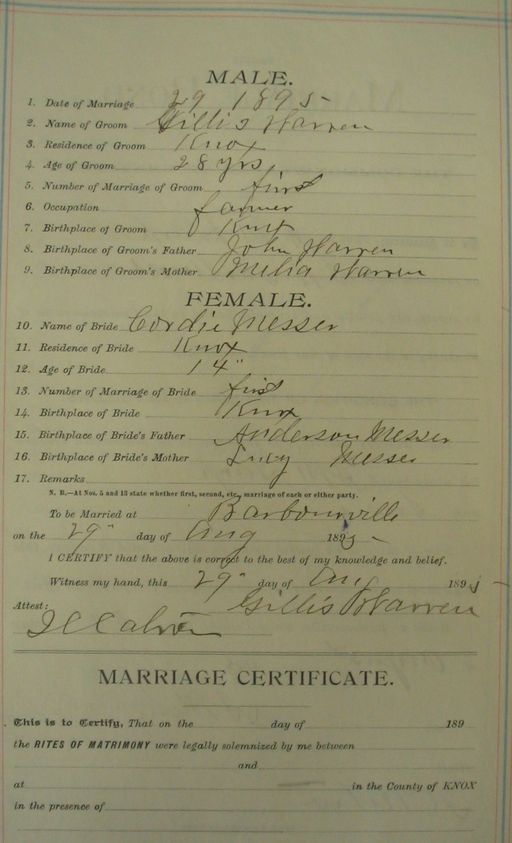 MALE.
1. Date of Marriage 29 1895
2. Name of Groom Gillis Warren
3. Residence of Groom Knox
4. Age of Groom 28 yrs
5. Number of Marriage of Groom first
6. Occupation farmer
7. Birthplace of Groom Knox
8. Birthplace of Groom's Father John Warren
9. Birthplace of Groom's Mother Milia Warren
FEMALE.
10. Name of Bride Cordie Messer
11. Residence of Bride Knox
12. Age of Bride 14"
13. Number of Marriage of Bride first
14. Birthplace of Bride Knox
15. Birthplace of Bride's Father Anderson Messer
16. Birthplace of Bride's Mother Lucy Messer
17. Remarks
N. B.—At Nos. 5 and 13 state whether first, second, etc., marriage of each or either party.
To be Married at Barbourville
on the 29" day of Aug 1895
I CERTIFY that the above is correct to the best of my knowledge and belief.
Witness my hand, this 29" day of Aug 1895
Attest: Gillis Warren
MARRIAGE CERTIFICATE.
This is to Certify, That on the day of 189
the RITES OF MATRIMONY were legally solemnized by me between
and
at in the County of KNOX
in the presence of